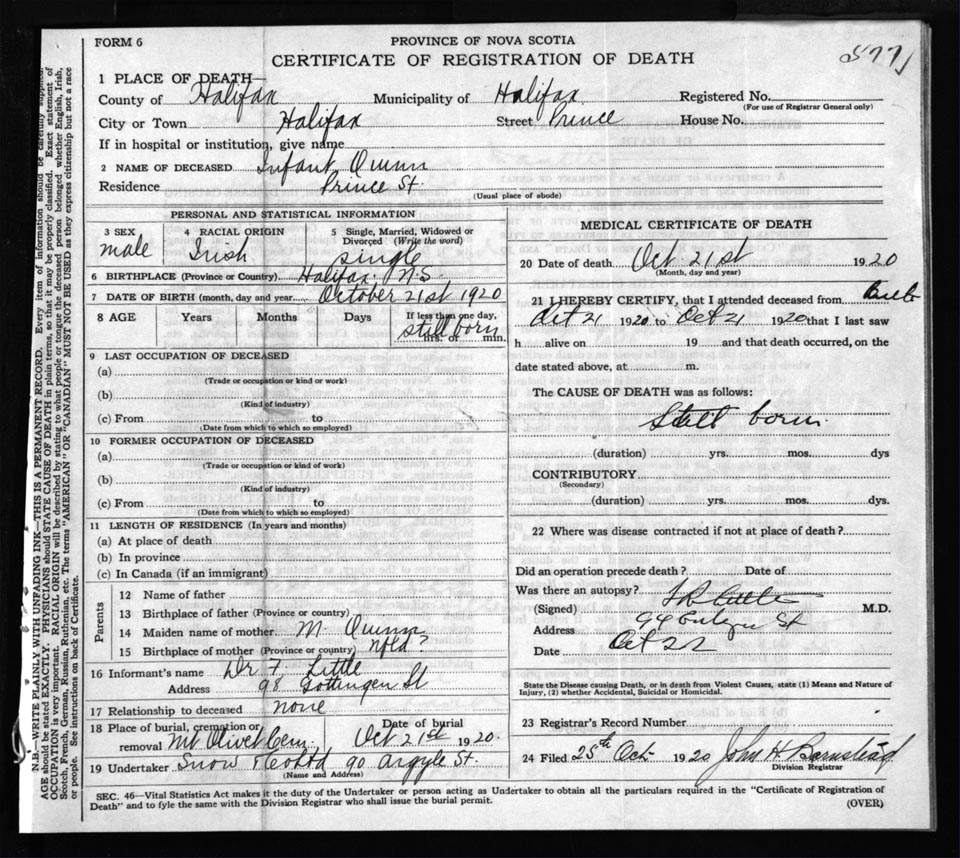 FORM 6
PROVINCE OF NOVA SCOTIA
CERTIFICATE OF REGISTRATION OF DEATH
1 PLACE OF DEATH—
County of Halifax Municipality of Halifax Registered No.
(For use of Registrar General only)
City or Town Halifax Street Prince House No.
If in hospital or institution, give name
2 NAME OF DECEASED Infant Quinn
Residence Prince St.
(Usual place of abode)
PERSONAL AND STATISTICAL INFORMATION
3 SEX
male
4 RACIAL ORIGIN
Irish
5 Single, Married, Widowed or
Divorced (Write the word)
single
6 BIRTHPLACE (Province or Country) Halifax N.S.
7 DATE OF BIRTH (month, day and year) October 21st 1920
8 AGE Years Months Days If less than one day,
still born
hrs. or min.
9 LAST OCCUPATION OF DECEASED
(a)
(Trade or occupation or kind or work)
(b)
(Kind of industry)
(c) From to
(Date from which to which so employed)
10 FORMER OCCUPATION OF DECEASED
(a)
(Trade or occupation or kind of work)
(b)
(Kind of industry)
(c) From to
(Date from which to which so employed)
11 LENGTH OF RESIDENCE (In years and months)
(a) At place of death
(b) In province
(c) In Canada (if an immigrant)
Parents
12 Name of father
13 Birthplace of father (Province or country)
14 Maiden name of mother M. Quinn
15 Birthplace of mother (Province or country) Nfld?
16 Informant's name Dr F. Little
Address 98 Gottingen St
17 Relationship to deceased none
18 Place of burial, cremation or
removal Mt Olivet Cem.
Date of burial
Oct 21st 1920.
19 Undertaker Snow & Co Ltd 90 Argyle St.
(Name and Address)
MEDICAL CERTIFICATE OF DEATH
20 Date of death Oct. 21st 1920
(Month, day and year)
21 I HEREBY CERTIFY, that I attended deceased from
Oct 21 1920 to Oct 21 1920 that I last saw
h alive on 19 and that death occurred, on the
date stated above, at m.
The CAUSE OF DEATH was as follows:
Still born
(duration) yrs. mos. dys
CONTRIBUTORY
(Secondary)
(duration) yrs. mos. dys.
22 Where was disease contracted if not at place of death?
Did an operation precede death? Date of
Was there an autopsy?
(Signed) M.D.
Address St
Date Oct 22
State the Disease causing Death, or in death from Violent Causes, state (1) Means and Nature of
Injury, (2) whether Accidental, Suicidal or Homicidal.
23 Registrar's Record Number
24 Filed 25th Oct 1920 John H Barnstead
Division Registrar
SEC. 46—Vital Statistics Act makes it the duty of the Undertaker or person acting as Undertaker to obtain all the particulars required in the "Certificate of Registration of
Death" and to fyle the same with the Division Registrar who shall issue the burial permit.
(OVER)
N.B.—WRITE PLAINLY WITH UNFADING INK—THIS IS A PERMANENT RECORD. Every item of information should be carefully supplied.
AGE should be stated EXACTLY. PHYSICIANS should STATE CAUSE OF DEATH in plain terms, so that it may be properly classified. Exact statement of
OCCUPATION is very important. RACIAL ORIGIN will be described by stating to what people or tongue the deceased person belonged, whether English, Irish,
Scotch, French, German, Russian, Ruthenian, etc. The terms "AMERICAN" OR "CANADIAN" MUST NOT BE USED as they express citizenship but not a race
or people. See instructions on back of Certificate.